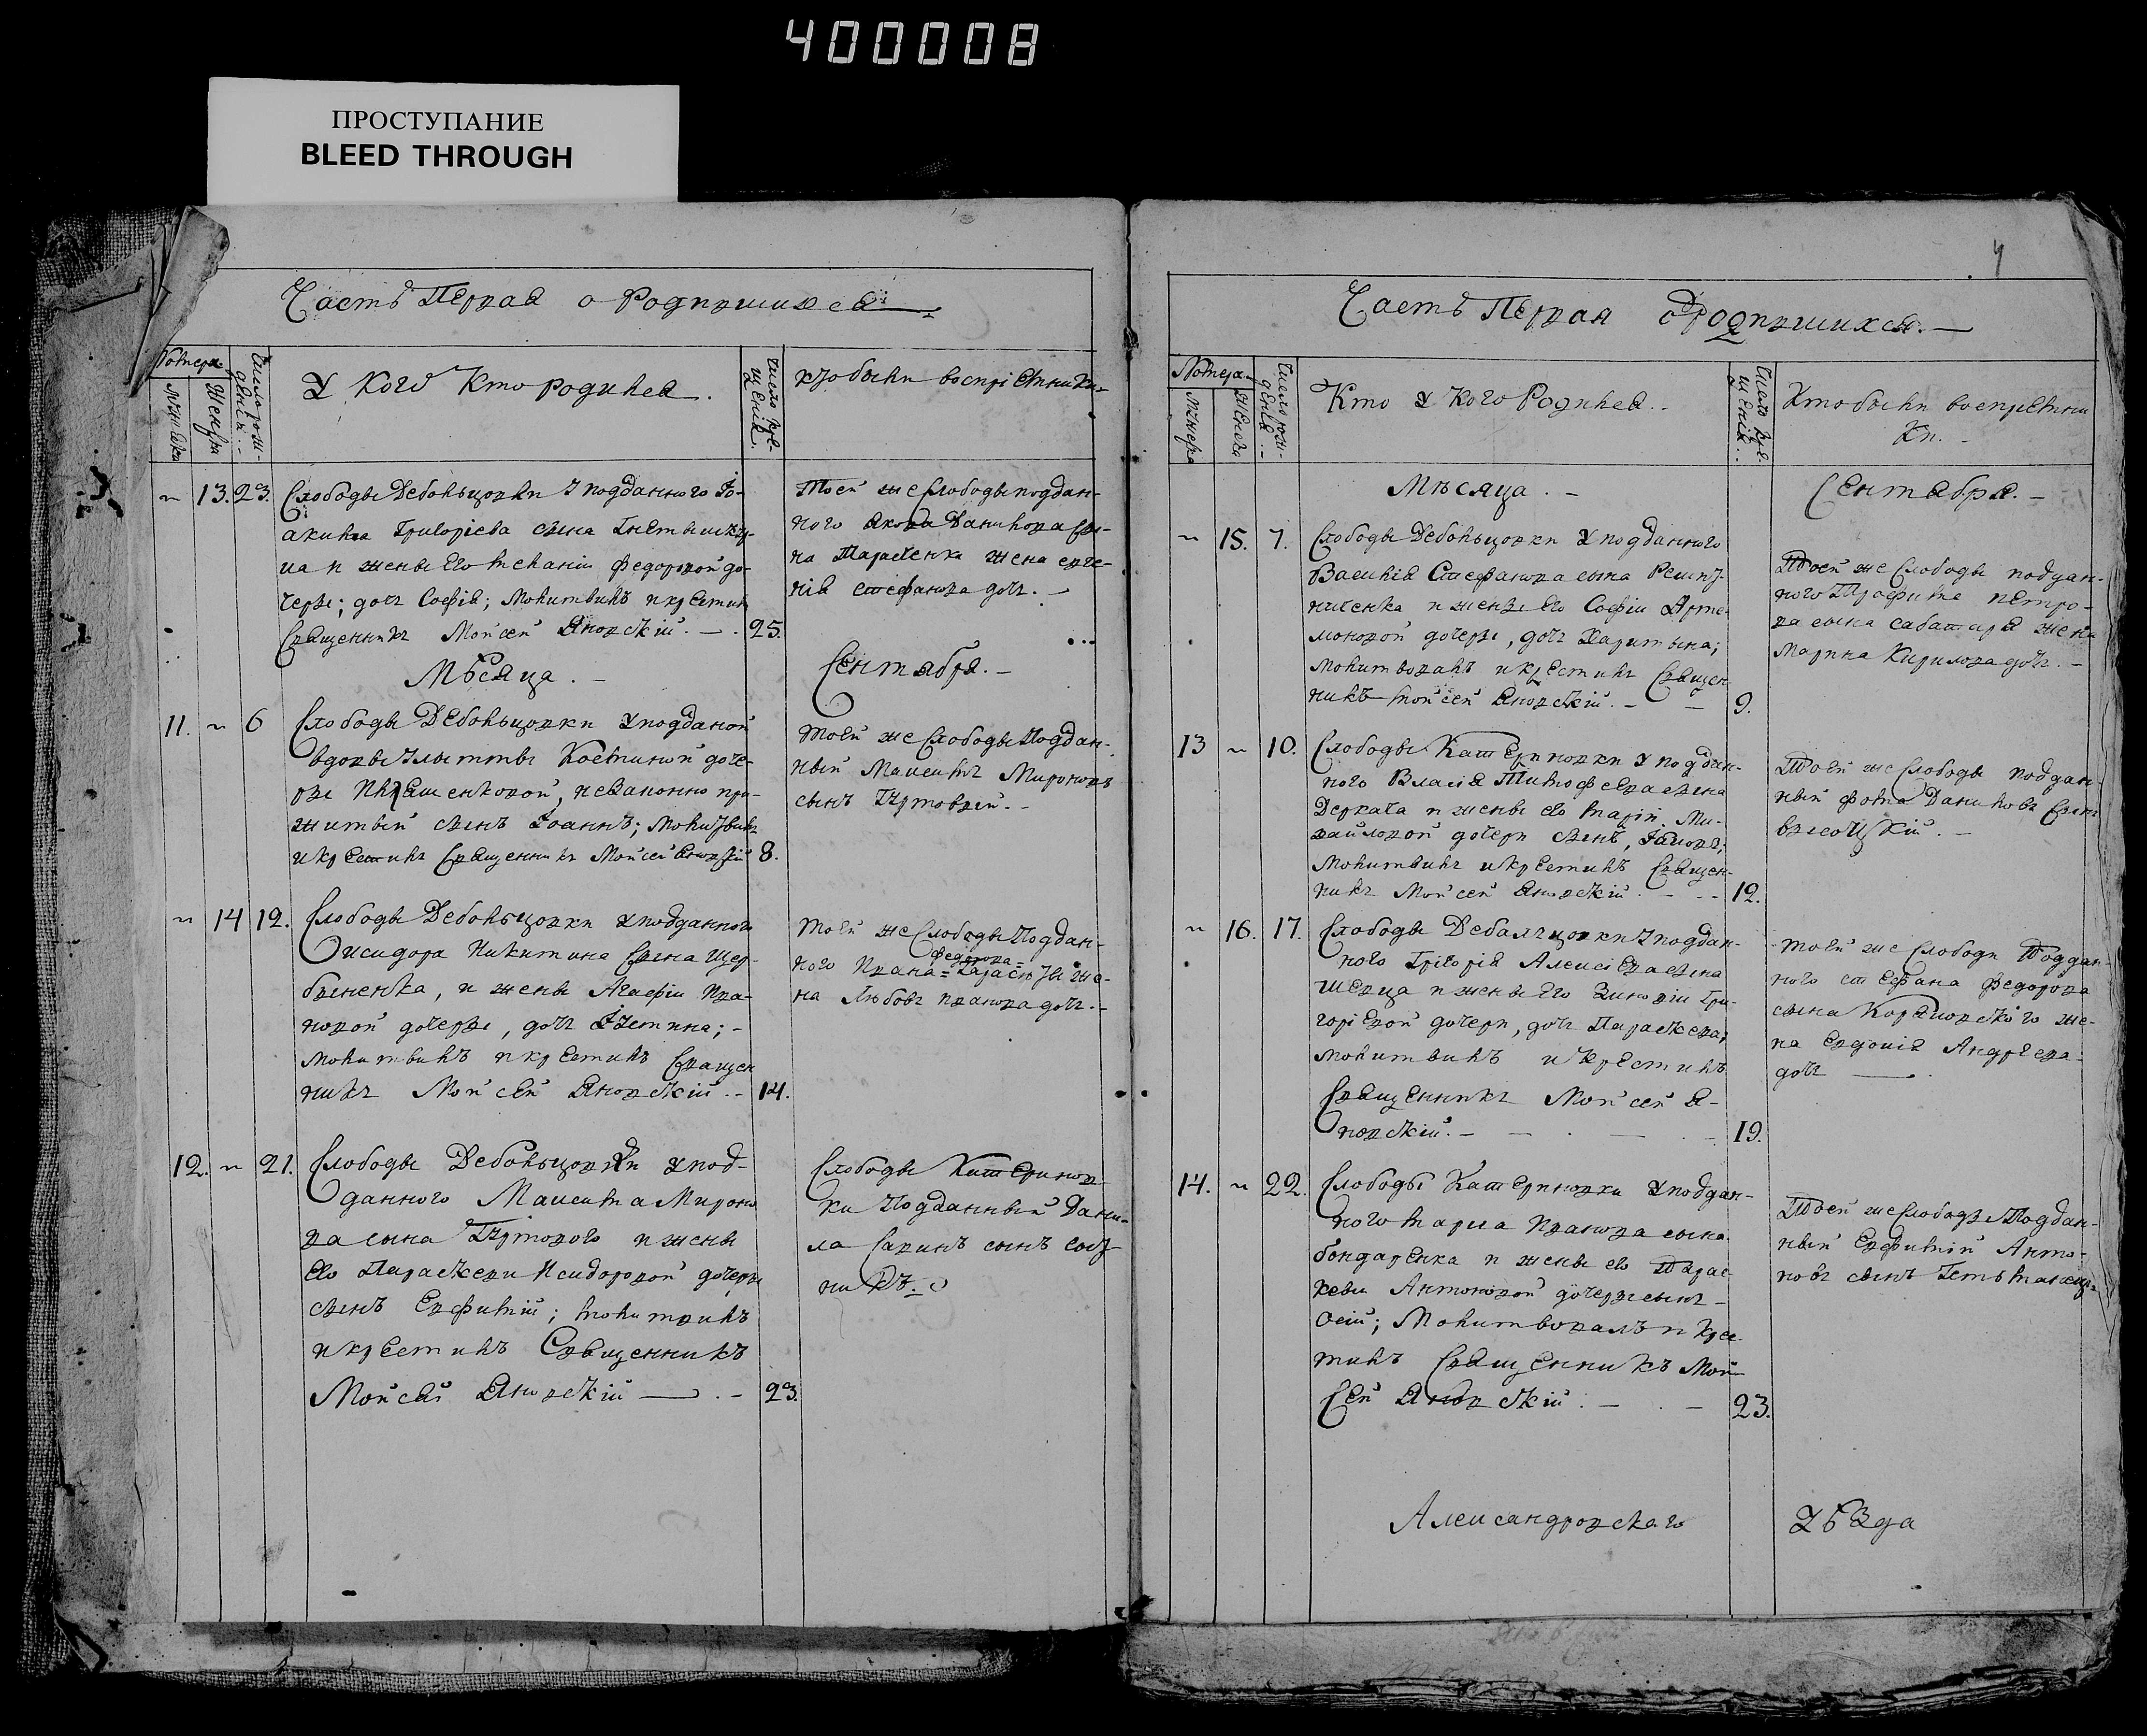 400008
ПРОСТУПАНИЕ
BLEED THROUGH
Часть Первая о Родившихся
Номера
Мужеска
Женска
Число рождения
У кого кто родился.
Число крещения.
кто были воспріемники
13. 23. Слободы Дебольцовки у подданного Іо-
акима Григоріева сына
на и жены его Меланіи Федоровой до-
чери; дочь Софія; молитвилъ и крестилъ
Священникъ Мойсей Яновскій. 25.
Тоей же Слободы поддан-
ного Якова Данилова сы-
на Тарасенка жена Евге-
нія Стефанова дочь.
Мѣсяца.
Сентября.
11. 6 Слободы Дебольцовки у подданой
вдовы Костиной доче-
ри незаконно при-
житый сынъ Іоаннъ; молитвилъ
и крестилъ Священникъ Мойсей Яновскій 8.
тоей же Слободы Поддан-
ный Максимъ Мироновъ
сынъ
14 12. Слободы Дебольцовки у подданного
Исидора Никитина сына Щер-
биненка, и жены Агафіи Ива-
новой дочери, дочь Іустина;
молитвилъ и крестилъ Священ
никъ Мойсей Яновскій. 14.
тоей же Слободы Поддан-
Федорова
ного Ивана же-
на Любовь Иванова дочь.
12. 21. Слободы Дебольцовки у под-
данного Максима Мироно
ва сына и жены
его Параскеви Исидоровой дочери
сынъ Евфимій; молитвилъ
и крестилъ Священникъ
Мойсей Яновскій 23.
Слободы Катеринов-
ки Подданный Дани-
ла Савинъ сынъ
4
Часть Первая о родившихся.
Номера.
Мужеска
Женска
Число рожденія
Кто у кого Родился.
Число крещенія.
Кто были воспріемни
ки.
Мѣсяца.
Сентября.
15. 7. Слободы Дебольцовки у подданного
Василія Стефанова сына
и жены его Софіи Арте-
моновой дочери, дочь Харитина;
молитвовалъ и крестилъ Священ
никъ Мойсей Яновскій. 9.
Тоей же Слободы поддан-
ного Трофима Петро-
ва сына жена
Марина Кирилова дочь.
13 10. Слободы Катериновки у поддан-
ного Власія Тимофеева сына
Деркача и жены его Маріи Ми-
хайловой дочери сынъ, Іаковъ;
молитвилъ и крестилъ Священ-
никъ Мойсей Яновскій. 12.
Тоей же Слободы поддан-
ный Фома Даниловъ сынъ
Высоцкій.
16. 17. Слободы Дебальцовки у поддан-
ного Григорія Алексіева сына
Шевца и жены его Зиновіи Гри-
горіевой дочери, дочь Параскева;
молитвилъ и крестилъ
Священникъ Мойсей Я-
новскій. 19.
тоей же Слободы Поддан-
ного Стефана Федорова
сына же-
на Евдокія Андреева
дочь
14. 22. Слободы Катериновки у поддан-
ного Марка Иванова сына
бондаренка и жены его Парас-
кевы Антоновой дочери сынъ
молитвовалъ и крес-
тилъ Священникъ Мой
сей Яновскій. 23.
Тоей же Слободы Поддан-
ный Евфимій Анто-
новъ сынъ
Александровскаго уѣзда